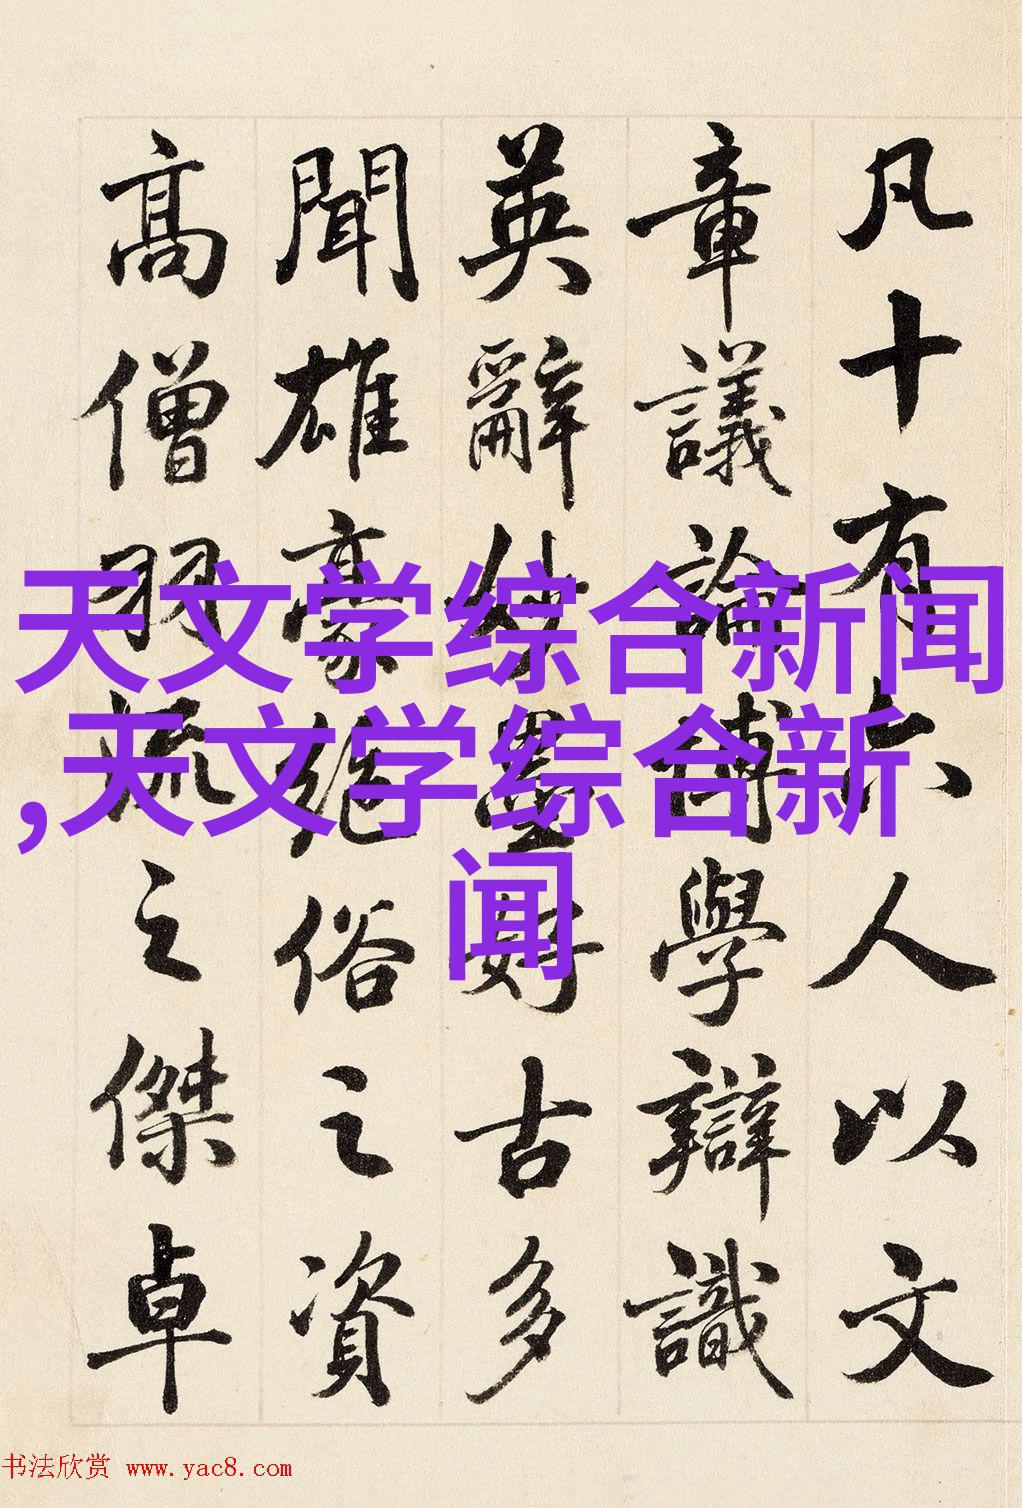 凡十有六人以文
章議論博學辯識
英辭妙墨好古多
聞雄豪絕俗之資
高僧羽流之傑卓
天文学综合新闻
,天文学综合新
闻
书法欣赏 www.yac8.com